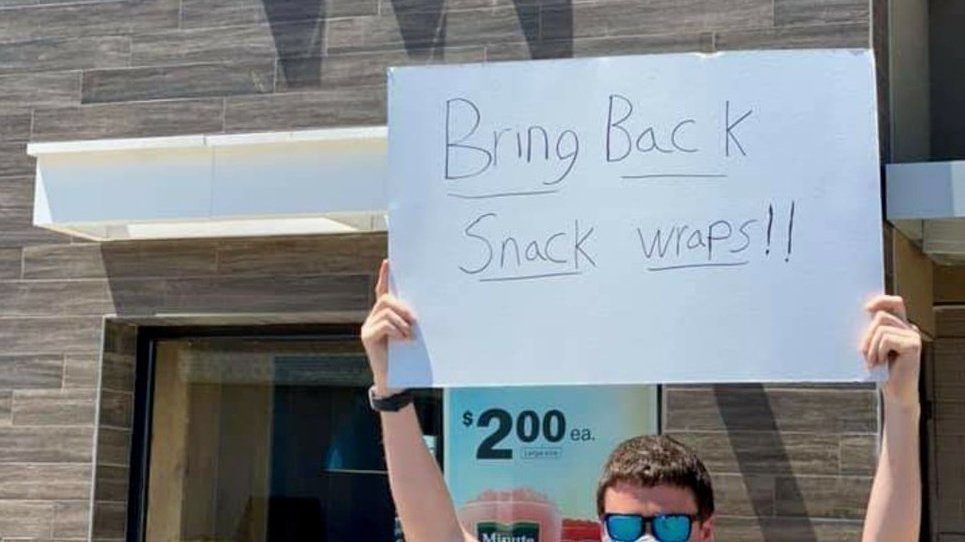 Bring Back
Snack wraps!!
$2.00 ea.
Large size
Minute